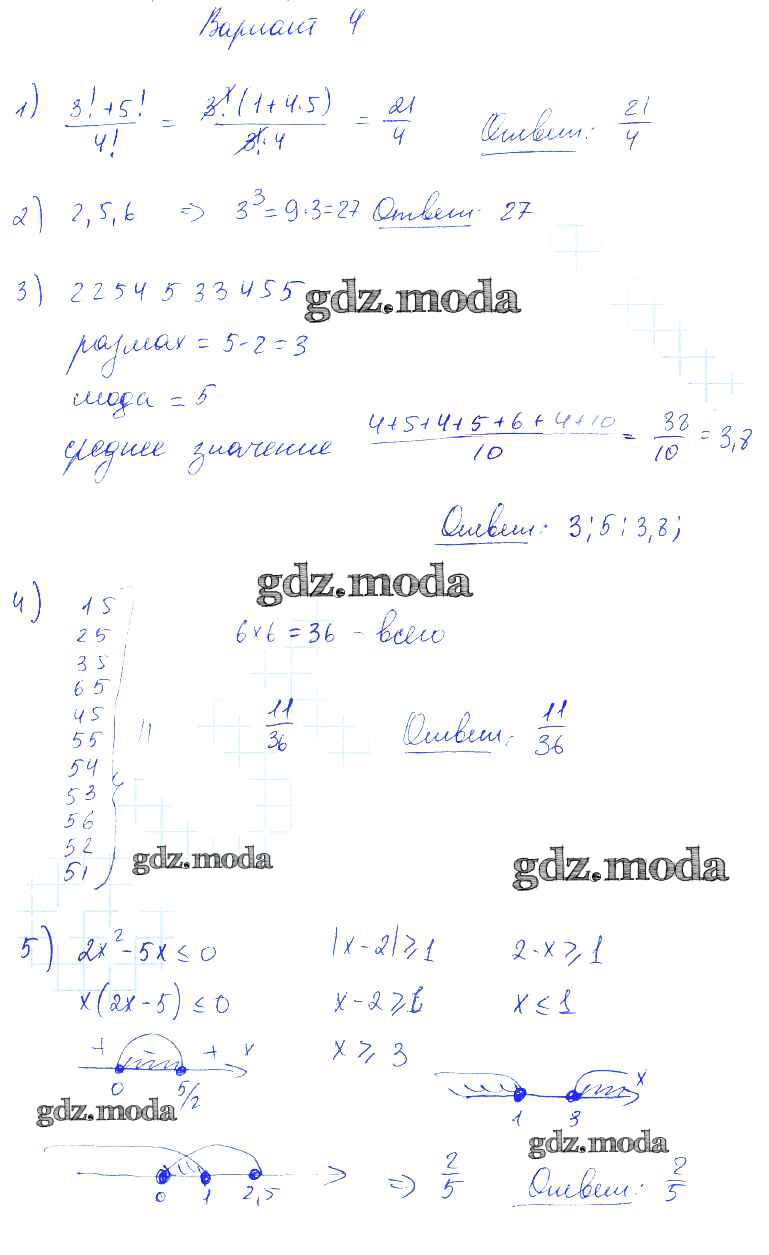 Вариант 4
1) (3!+5!)/4! = 3!(1+4·5)/(3!·4) = 21/4 Ответ: 21/4
2) 2,5,6 => 3³=9·3=27 Ответ: 27
3) 2 2 5 4 5 3 3 4 5 5
gdz.moda
размах = 5-2=3
мода = 5
среднее значение (4+5+4+5+6+4+10)/10 = 38/10 = 3,8
Ответ: 3;5;3,8;
gdz.moda
4) 15
25 6×6=36 - всего
35
65
45
55 11 11/36 Ответ: 11/36
54
53
56
52
51
gdz.moda
gdz.moda
5) 2x²-5x≤0 |x-2|≥1 2-x≥1
x(2x-5)≤0 x-2≥1 x≤1
+ + x
x≥3
0 5/2
x
1 3
gdz.moda
gdz.moda
0 1 2,5 => 2/5 Ответ: 2/5